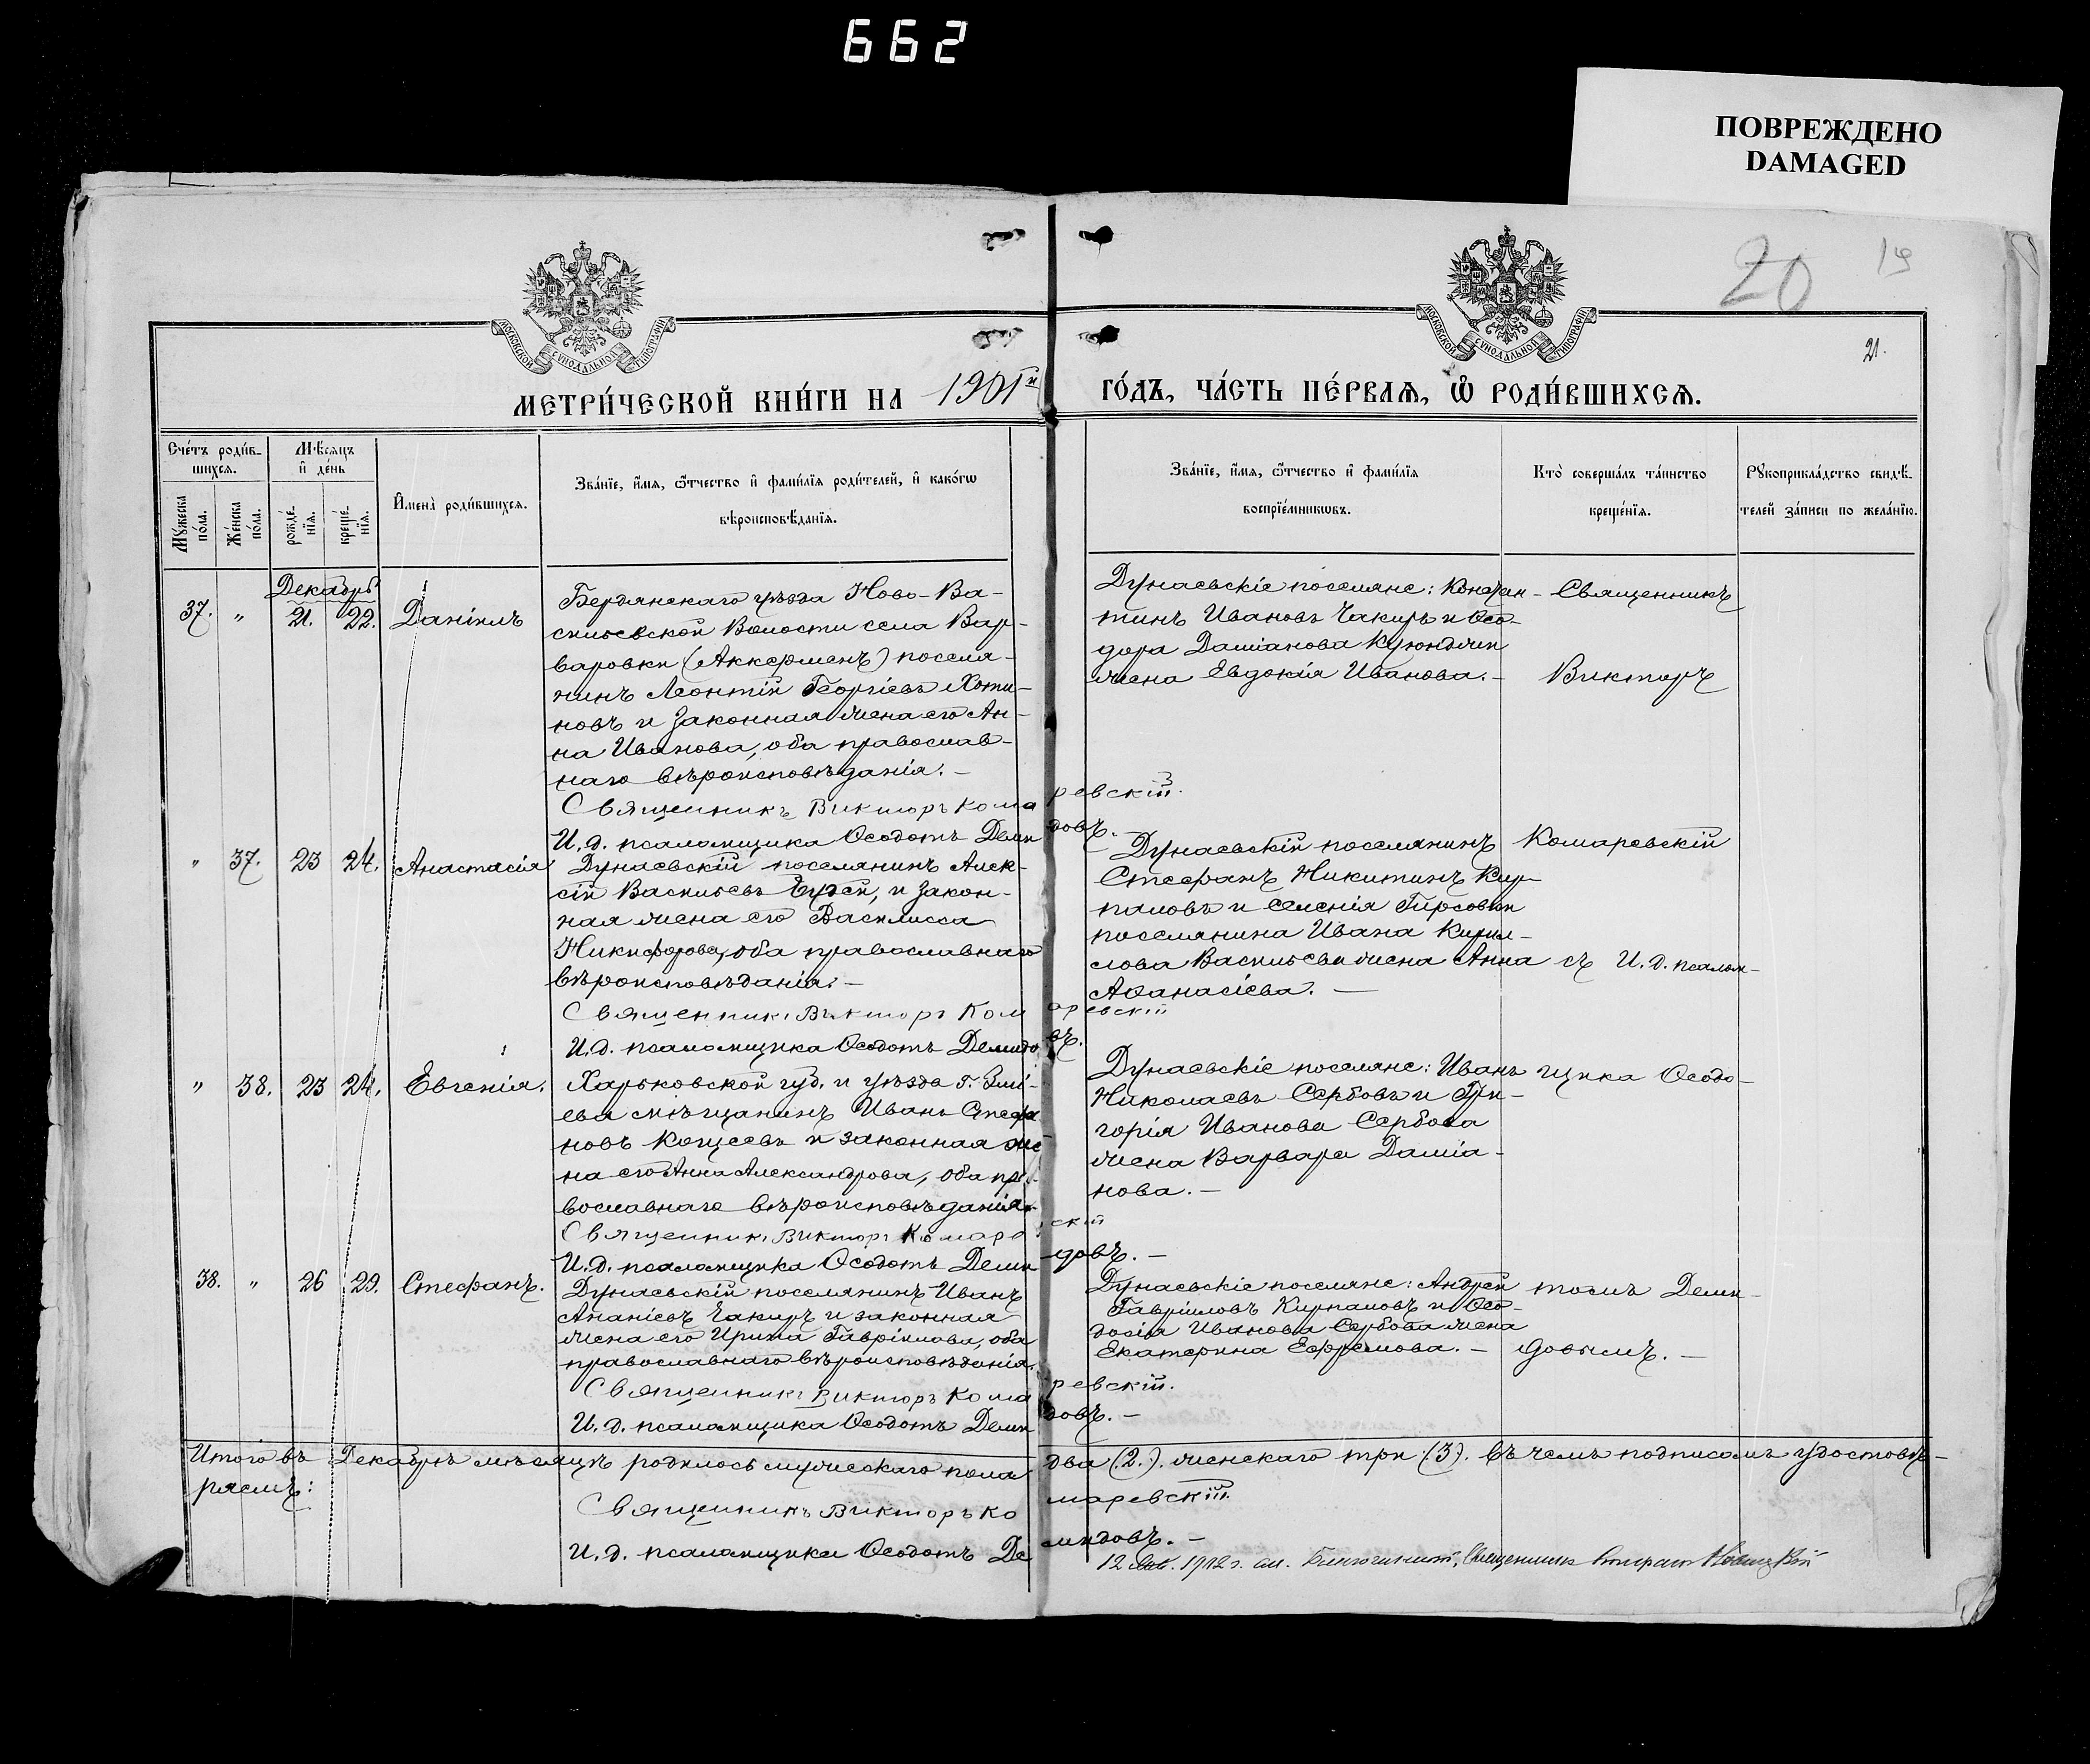 662
ПОВРЕЖДЕНО
DAMAGED
20
19
21.
МОСКОВСКОЙ СѴНОДАЛЬНОЙ ТИПОГРАФІИ
МОСКОВСКОЙ СѴНОДАЛЬНОЙ ТИПОГРАФІИ
МЕТРИ́ЧЕСКОЙ КНИ́ГИ НА 1901й ГО́ДЪ, ЧА́СТЬ ПЕ́РВАѦ, Ѡ РОДИ́ВШИХСѦ.
Сче́тъ роди́в-
шихсѧ.
Мꙋ́жеска по́ла.
Же́нска по́ла.
Мѣ́сѧцъ
и҆ де́нь
рожде́-
нїѧ.
креще́-
нїѧ.
И҆мена̀ роди́вшихсѧ.
Зва́нїе, и҆́мѧ, ѻ҆́тчество и҆ фами́лїѧ роди́телей, и҆ како́гѡ
вѣроисповѣ́данїѧ.
Зва́нїе, и҆́мѧ, ѻ҆́тчество и҆ фами́лїѧ
воспрїе́мникѡвъ.
Кто̀ соверша́лъ та́инство
креще́нїѧ.
Рꙋкоприкла́дство свидѣ́-
телей за́писи по жела́нїю.
Декабрь
37. " 21. 22. Даніилъ
Бердянскаго уѣзда Ново-Ва-
сильевской Волости села Вар-
варовки (Аккерменъ) поселя-
нинъ Леонтій Георгіевъ Хоти-
новъ и законная жена его Ан-
на Иванова, оба православ-
наго вѣроисповѣданія. —
Священникъ Викторъ Комаревскій.
И. д. псаломщика Ѳеодотъ Демидовъ.
Дунаевскіе поселяне: Констан-
тинъ Ивановъ Чакиръ и Ѳео-
дора Даміанова Куюнджи
жена Евдокія Иванова. —
Священникъ
Викторъ
" 37. 23 24. Анастасія
Дунаевскій поселянинъ Алек-
сій Васильевъ и закон-
ная жена его Василисса
Никифорова, оба православнаго
вѣроисповѣданія. —
Священникъ Викторъ Комаревскій
И. д. псаломщика Ѳеодотъ Демидовъ.
Дунаевскій поселянинъ
Стефанъ Никитинъ Кир-
паловъ и селенія Гирсовки
поселянина Ивана Кирил-
лова Васильева жена Анна
Аѳанасіева. —
Комаревскій
съ И. д. псалом-
" 38. 23 24. Евгенія.
Харьковской губ. и уѣзда г. Змі-
ева мѣщанинъ Иванъ Стефа
новъ Кощеевъ и законная же
на его Анна Александрова, оба пра-
вославнаго вѣроисповѣданія.
Священникъ Викторъ Комаревскій
И. д. псаломщика Ѳеодотъ Демидовъ. —
Дунаевскіе поселяне: Иванъ
Николаевъ Сербовъ и Гри-
горія Иванова Сербова
жена Варвара Даміа-
нова. —
щика Ѳеодо-
38. " 26 29. Стефанъ.
Дунаевскій поселянинъ Иванъ
Ананіевъ Чакиръ и законная
жена его Ирина Гавріилова, оба
православнаго вѣроисповѣданія.
Священникъ Викторъ Комаревскій.
И. д. псаломщика Ѳеодотъ Демидовъ. —
Дунаевскіе поселяне: Андрей
Гавріиловъ Кирпаловъ и Ѳео-
досія Иванова Сербова жена
Екатерина Ефремова. —
томъ Деми-
довымъ. —
Итого въ Декабрѣ мѣсяцѣ родилось мужескаго пола два (2.). женскаго три (3). въ чемъ подписомъ удостовѣ-
ряемъ:
Священникъ Викторъ Комаревскій.
И. д. псаломщика Ѳеодотъ Демидовъ. —
12 1902 г. Благочинный, Священникъ